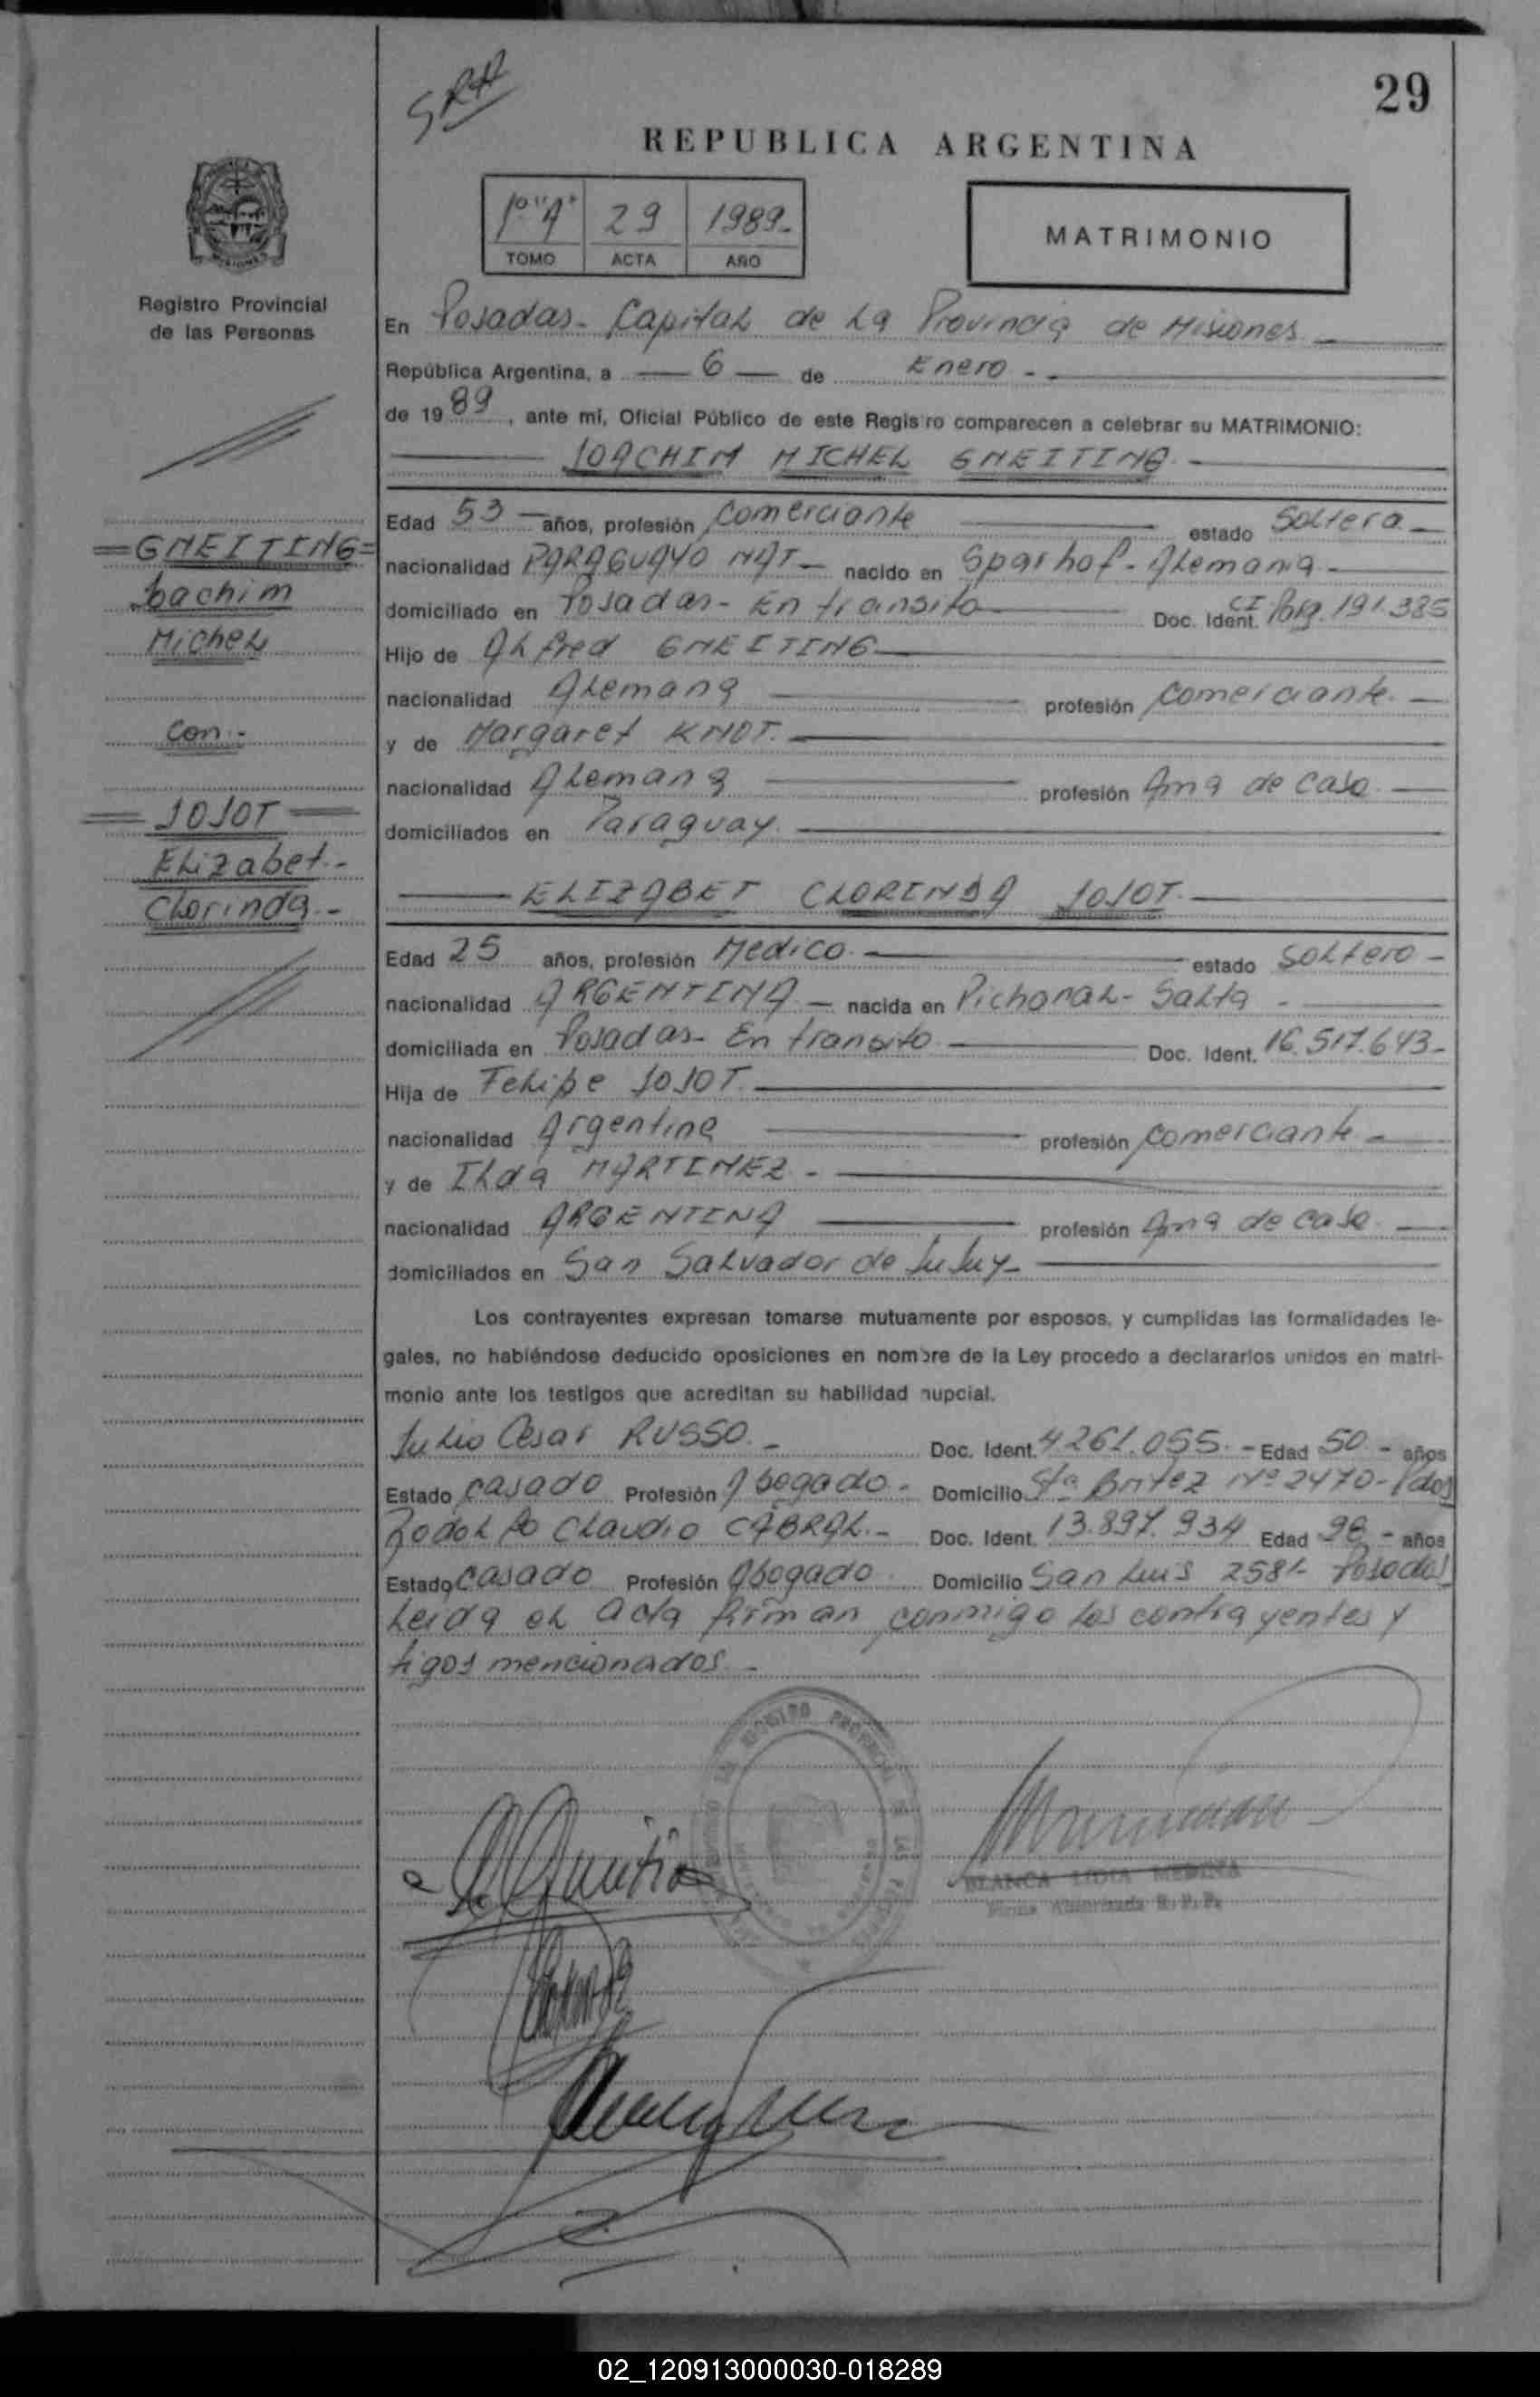 SRA
29
REPUBLICA ARGENTINA
1º "A" 29 1989-
TOMO ACTA AÑO
MATRIMONIO
Registro Provincial
de las Personas
En Posadas- Capital de La Provincia de Misiones
República Argentina, a 6 de Enero -
de 1989, ante mí, Oficial Público de este Registro comparecen a celebrar su MATRIMONIO:
JOACHIM MICHEL GNEITING
Edad 53 años, profesión Comerciante estado Soltera
=GNEITING=
nacionalidad PARAGUAYO NAT- nacido en Sparhof- Alemania-
Joachim
domiciliado en Posadas- En transito Doc. Ident. CI Parg. 191.385
Michel
Hijo de Alfred GNEITING
nacionalidad Alemana profesión Comerciante.
Con-
y de Margaret KNOT.
nacionalidad Alemana profesión Ama de Casa
=JOJOT=
domiciliados en Paraguay.
Elizabet-
ELIZABET CLORINDA JOJOT.
Clorinda-
Edad 25 años, profesión Medico. estado Soltero-
nacionalidad ARGENTINA- nacida en Pichanal- Salta -
domiciliada en Posadas- En transito Doc. Ident. 16.517.643-
Hija de Felipe JOJOT.
nacionalidad Argentina profesión Comerciante-
y de Ilda MARTINEZ-
nacionalidad ARGENTINA profesión Ama de Casa.
domiciliados en San Salvador de JuJuy-
Los contrayentes expresan tomarse mutuamente por esposos, y cumplidas las formalidades le-
gales, no habiéndose deducido oposiciones en nombre de la Ley procedo a declararlos unidos en matri-
monio ante los testigos que acreditan su habilidad nupcial.
Julio Cesar RUSSO.- Doc. Ident. 4261.055.- Edad 50- años
Estado Casado Profesión Abogado- Domicilio Sta Britez Nº 2470- Pdas
Rodolfo Claudio CABRAL.- Doc. Ident. 13.897.934 Edad - años
Estado Casado Profesión Abogado Domicilio San Luis 2581- Posadas
Leida el Acta firman conmigo los contrayentes y
tigos mencionados-
BLANCA LIDIA MEDINA
Firma Autorizada R. P. P.
02_120913000030-018289